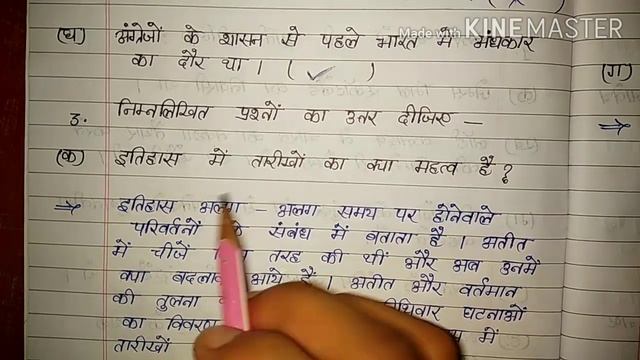 Made with KINEMASTER
(घ) अंग्रेजों के शासन से पहले भारत में अंधकार
का दौर था । ( ✓ )
(ग)
3. निम्नलिखित प्रश्नों का उत्तर दीजिए –
(क) इतिहास में तारीखों का क्या महत्व है ?
⇒ इतिहास अलग – अलग समय पर होनेवाले
परिवर्तनों के संबंध में बताता है अतीत
में चीजें तरह की थीं और अब उनमें
क्या बदलाव आये हैं । अतीत और वर्तमान
की तुलना तिथिवार घटनाओं
का विवरण में
तारीखों